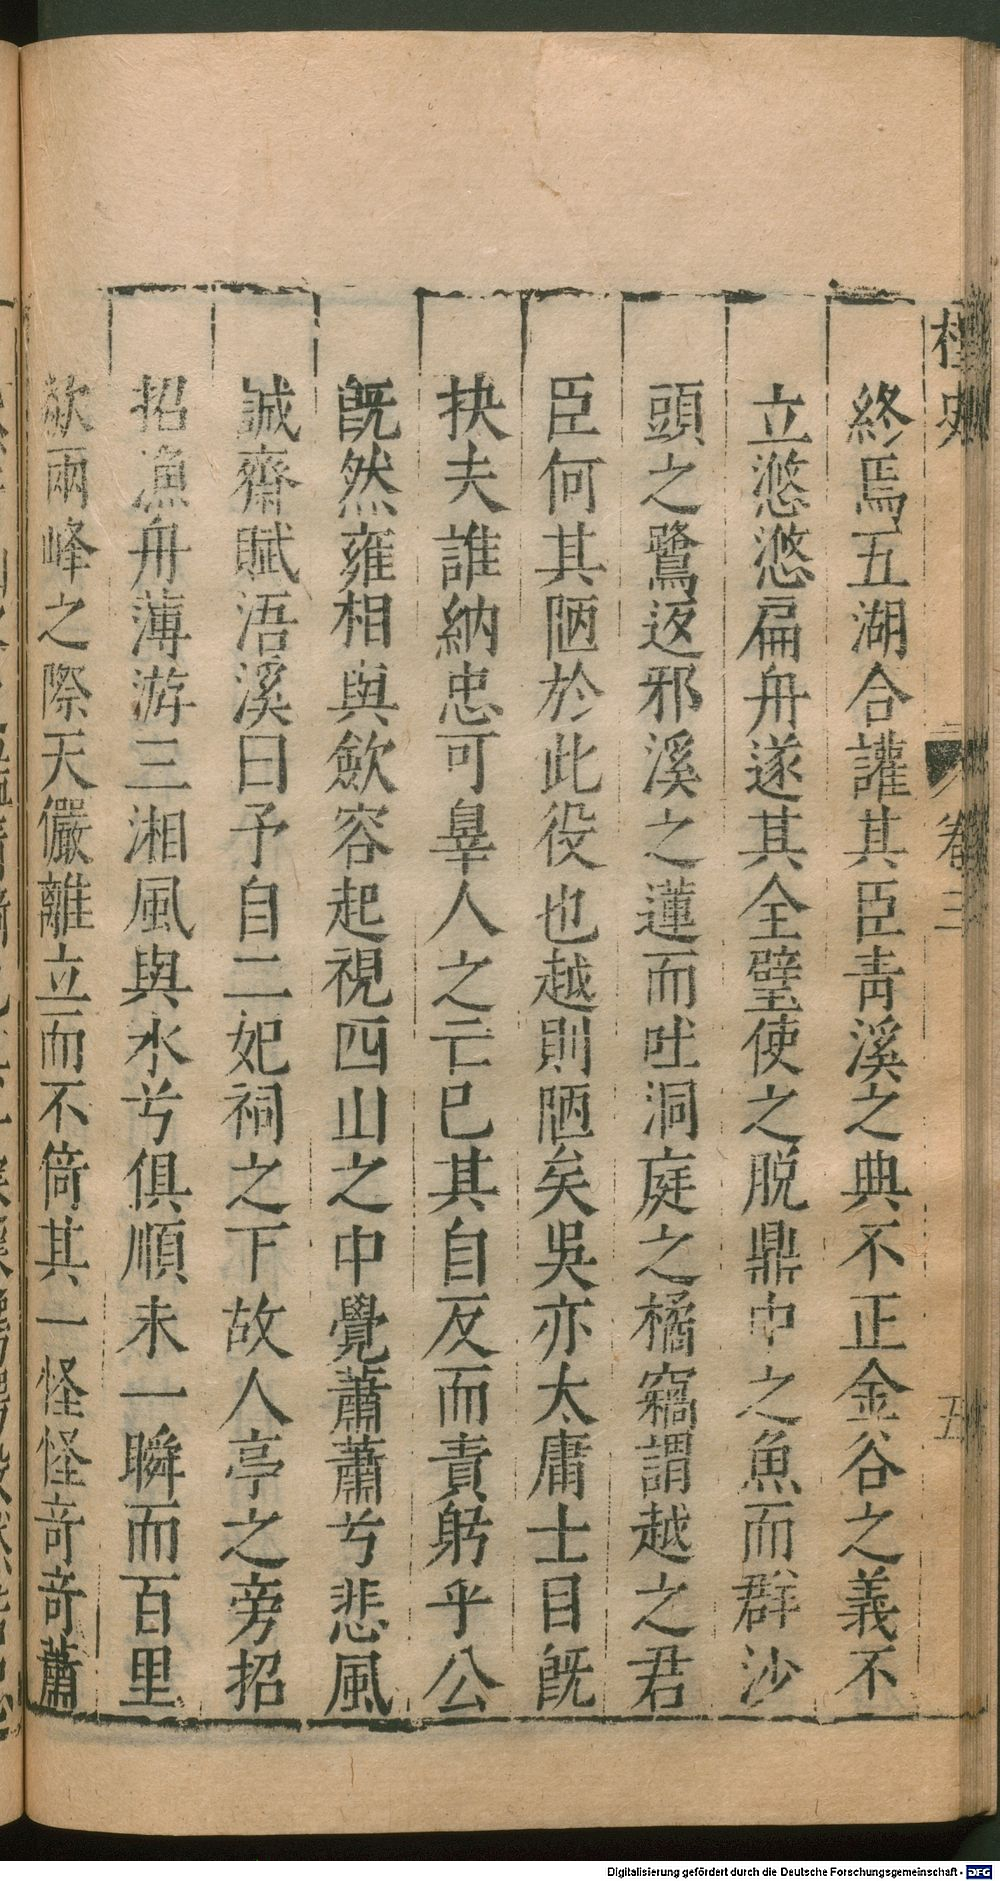 桯史
卷三
五
終焉五湖合讙其臣靑溪之典不正金谷之義不
立悠悠扁舟遂其全璧使之脱鼎中之魚而群沙
頭之鷺返邪溪之蓮而吐洞庭之橘竊謂越之君
臣何其陋於此役也越則陋矣吳亦太庸士目旣
抉夫誰納忠可辠人之亡已其自反而責躬乎公
旣然雍相與斂容起視四山之中覺蕭蕭兮悲風
誠齋賦浯溪曰予自二妃祠之下故人亭之旁招
招漁舟薄游三湘風與水兮俱順未一瞬而百里
欻兩峰之際天儼離立而不倚其一怪怪竒竒蕭
Digitalisierung gefördert durch die Deutsche Forschungsgemeinschaft - DFG